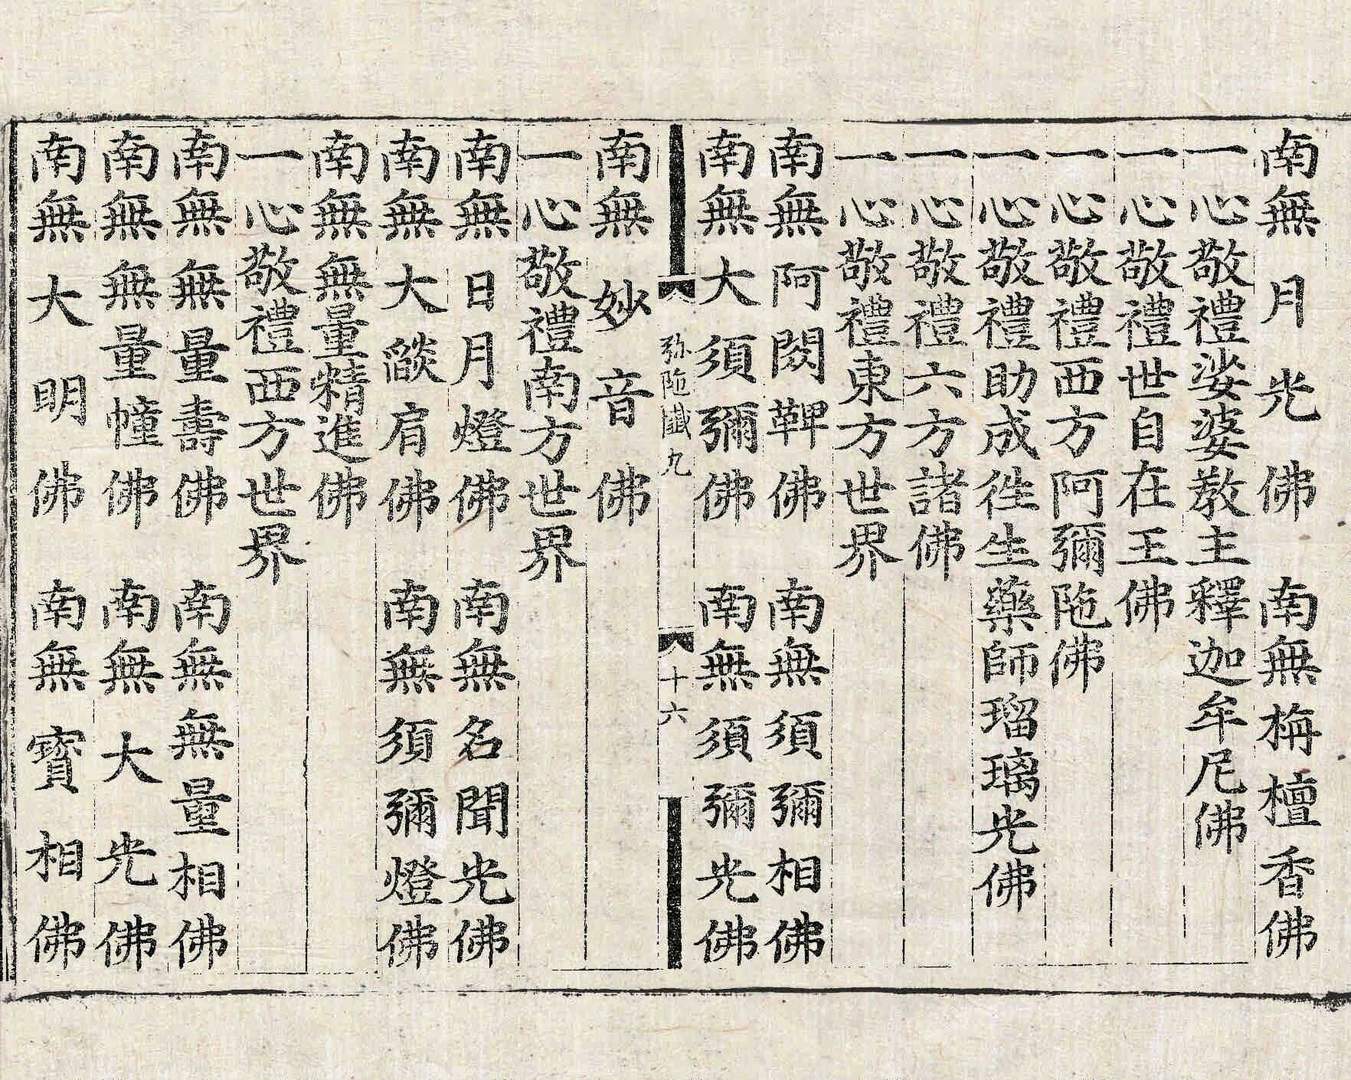 南無月光佛 南無栴檀香佛
一心敬禮娑婆教主釋迦牟尼佛
一心敬禮世自在王佛
一心敬禮西方阿彌陁佛
一心敬禮助成徃生藥師瑠璃光佛
一心敬禮六方諸佛
一心敬禮東方世界
南無阿閦鞞佛 南無須彌相佛
南無大須彌佛 南無須彌光佛
弥陁懺九 十六
南無妙音佛
一心敬禮南方世界
南無日月燈佛 南無名聞光佛
南無大燄肩佛 南無須彌燈佛
南無無量精進佛
一心敬禮西方世界
南無無量壽佛 南無無量相佛
南無無量幢佛 南無大光佛
南無大明佛 南無寶相佛